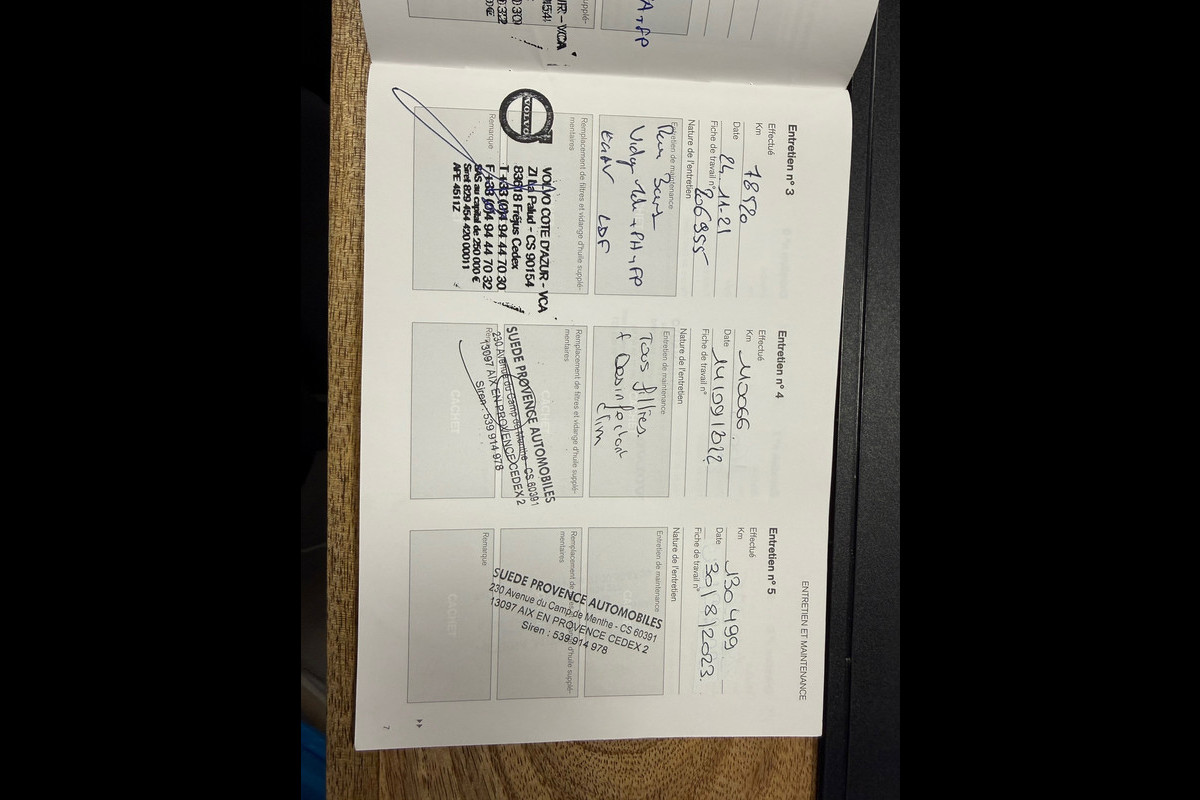 ENTRETIEN ET MAINTENANCE
Entretien n° 3
Effectué
Km 78520
Date 24.11.21
Fiche de travail n° 206955
Nature de l'entretien
Entretien de maintenance
Remplacement de filtres et vidange d'huile supplé-
mentaires
Remarque
VOLVO
VOLVO COTE D'AZUR - VCA
ZI La Palud - CS 90154
83618 Fréjus Cedex
T +33 (0)4 94 44 70 30
F +33 (0)4 94 44 70 32
SAS au capital de 250 000 €
Siret 829 454 420 00011
APE 4511Z
Entretien n° 4
Effectué
Km 110066
Date 14/09/2022
Fiche de travail n°
Nature de l'entretien
Entretien de maintenance
Tous filtres
+ Desinfectant
clim
Remplacement de filtres et vidange d'huile supplé-
mentaires
CACHET
SUEDE PROVENCE AUTOMOBILES
230 Avenue du Camp de Menthe - CS 60391
13097 AIX EN PROVENCE CEDEX 2
Siren : 539 914 978
Entretien n° 5
Effectué
Km 130499
Date 30/8/2023.
Fiche de travail n°
Nature de l'entretien
Entretien de maintenance
Remplacement de filtres et vidange d'huile supplé-
mentaires
Remarque
CACHET
SUEDE PROVENCE AUTOMOBILES
230 Avenue du Camp de Menthe - CS 60391
13097 AIX EN PROVENCE CEDEX 2
Siren : 539 914 978
7